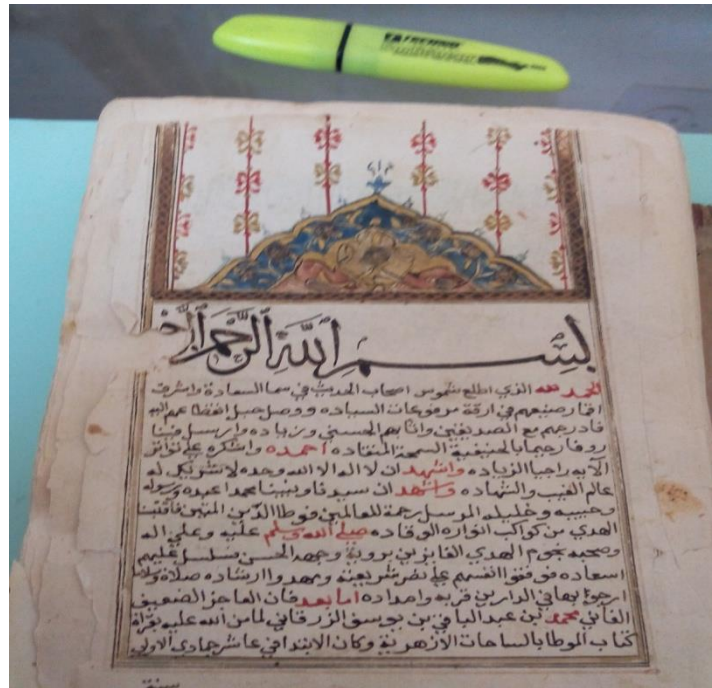 بسم الله الرحمن الرحيم
الحمد لله الذي اطلع شموس اصحاب الحديث في سما السعادة واشرق
اقمار صنيعهم في ارقة مرفوعات السياده ووصل حبل انقطاعهم اليه
فادرجهم مع الصديقين واثابهم الحسني وزياده وارسل فينا
روفا رحيما بالحنيفية السمحة المنقاده احمده واشكره علي تواتر
الآيه راجيا الزياده واشهد ان لا اله الا الله وحده لا شريك له
عالم الغيب والشهاده واشهد ان سيدنا ونبينا محمدا عبده ورسوله
وحبيبه وخليله المرسل رحمة للعالمين فوطا الدين المتين فاقتبسنا
الهدي من كواكب انواره الوقاده صلي الله وسلم عليه وعلي اله
وصحبه نجوم الهدي الفايزين بروية وجهه الحسن فسلسل عليهم
اسعاده فوقفوا انفسهم علي نصر شريعته ومهدوا ارشاده صلاة وسلاما
ارجو بهما في الدارين قربه وامداده اما بعد فان العاجز الضعيف
الفاني محمد بن عبد الباقي بن يوسف الزرقاني لما من الله عليه بقراة
كتاب الموطا بالساحات الازهرية وكان الابتدا في عاشر جمادي الاولي
سنة